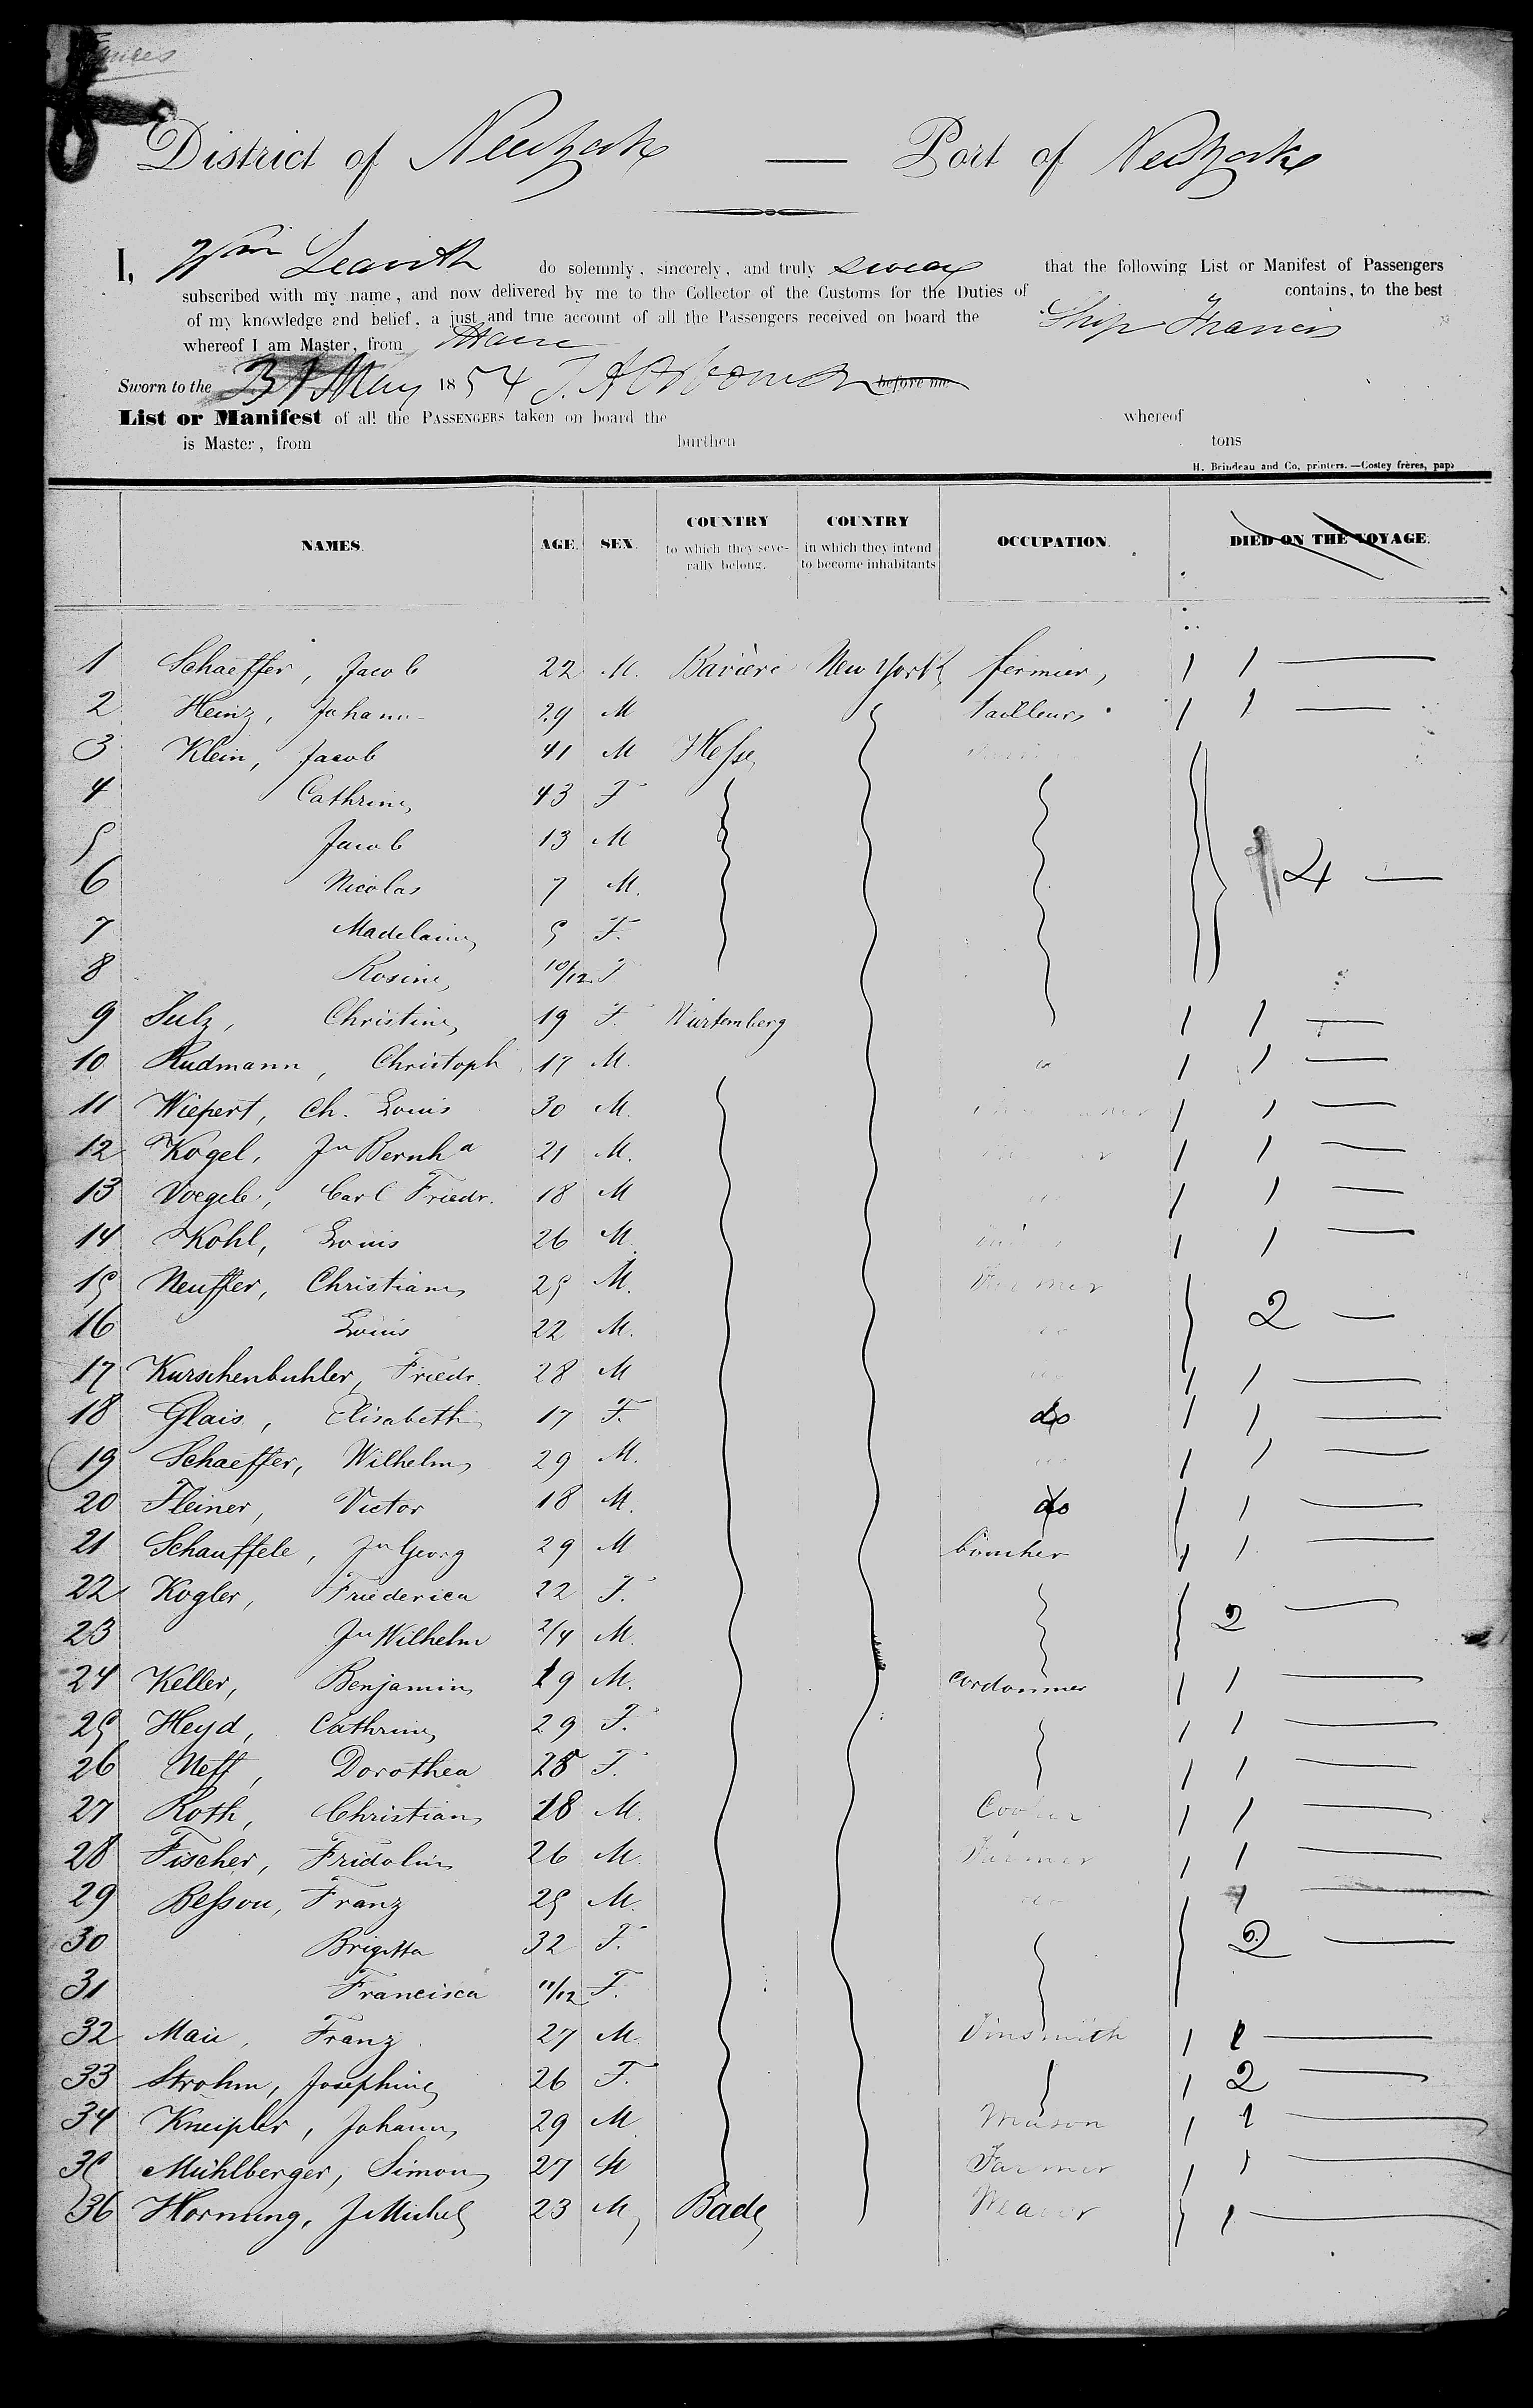 District of New York — Port of New York
I, Wm Leavitt do solemnly, sincerely, and truly swear that the following List or Manifest of Passengers
subscribed with my name, and now delivered by me to the Collector of the Customs for the Duties of contains, to the best
of my knowledge and belief, a just and true account of all the Passengers received on board the Ship Francis
whereof I am Master, from Havre
Sworn to the 31 May 1854 before me
List or Manifest of all the PASSENGERS taken on board the whereof
is Master, from burthen tons
H. Brindeau and Co, printers. — Costey frères, pap.
NAMES. AGE. SEX. COUNTRY to which they severally belong. COUNTRY in which they intend to become inhabitants OCCUPATION. DIED ON THE VOYAGE.
1 Schaeffer, Jacob 22 M. Bavière New York fermier, 1 1
2 Heinz, Johann 29 M tailleurs 1 1
3 Klein, Jacob 41 M Hesse
4 Cathrine 43 F
5 Jacob 13 M
6 Nicolas 7 M. 4
7 Madelaine 5 F.
8 Rosine 10/12 F
9 Sulz, Christine 19 F. Würtemberg 1 1
10 Rudmann, Christoph 17 M. 1 1
11 Wiepert, Ch. Louis 30 M. 1 1
12 Kogel, Jn Bernha 21 M. 1 1
13 Voegele, Carl Friedr. 18 M 1 1
14 Kohl, Louis 26 M 1 1
15 Neuffer, Christian 25 M. Farmer
16 Louis 22 M. 2
17 Kurschenbuhler, Friedr. 28 M 1 1
18 Glais, Elisabeth 17 F. do 1 1
19 Schaeffer, Wilhelm 29 M. 1 1
20 Fleiner, Victor 18 M. do 1 1
21 Schauffele, Jn Georg 29 M boucher 1 1
22 Kogler, Friederica 22 F.
23 Jn Wilhelm 2/4 M. 2
24 Keller, Benjamin 19 M. Cordonnier 1 1
25 Heyd, Cathrine 29 F. 1 1
26 Neff, Dorothea 28 F. 1 1
27 Roth, Christian 18 M. Cooper 1 1
28 Fischer, Fridolin 26 M. Farmer 1 1
29 Besson, Franz 25 M. 1
30 Brigitta 32 F. 2
31 Francisca 11/12 F.
32 Maie, Franz 27 M. Tinsmith 1 1
33 Strohm, Josephine 26 F. 1 2
34 Kneipler, Johann 29 M Mason 1 1
35 Mühlberger, Simon 27 M Farmer 1 1
36 Hornung, J Michel 23 M Bade Weaver 1 1